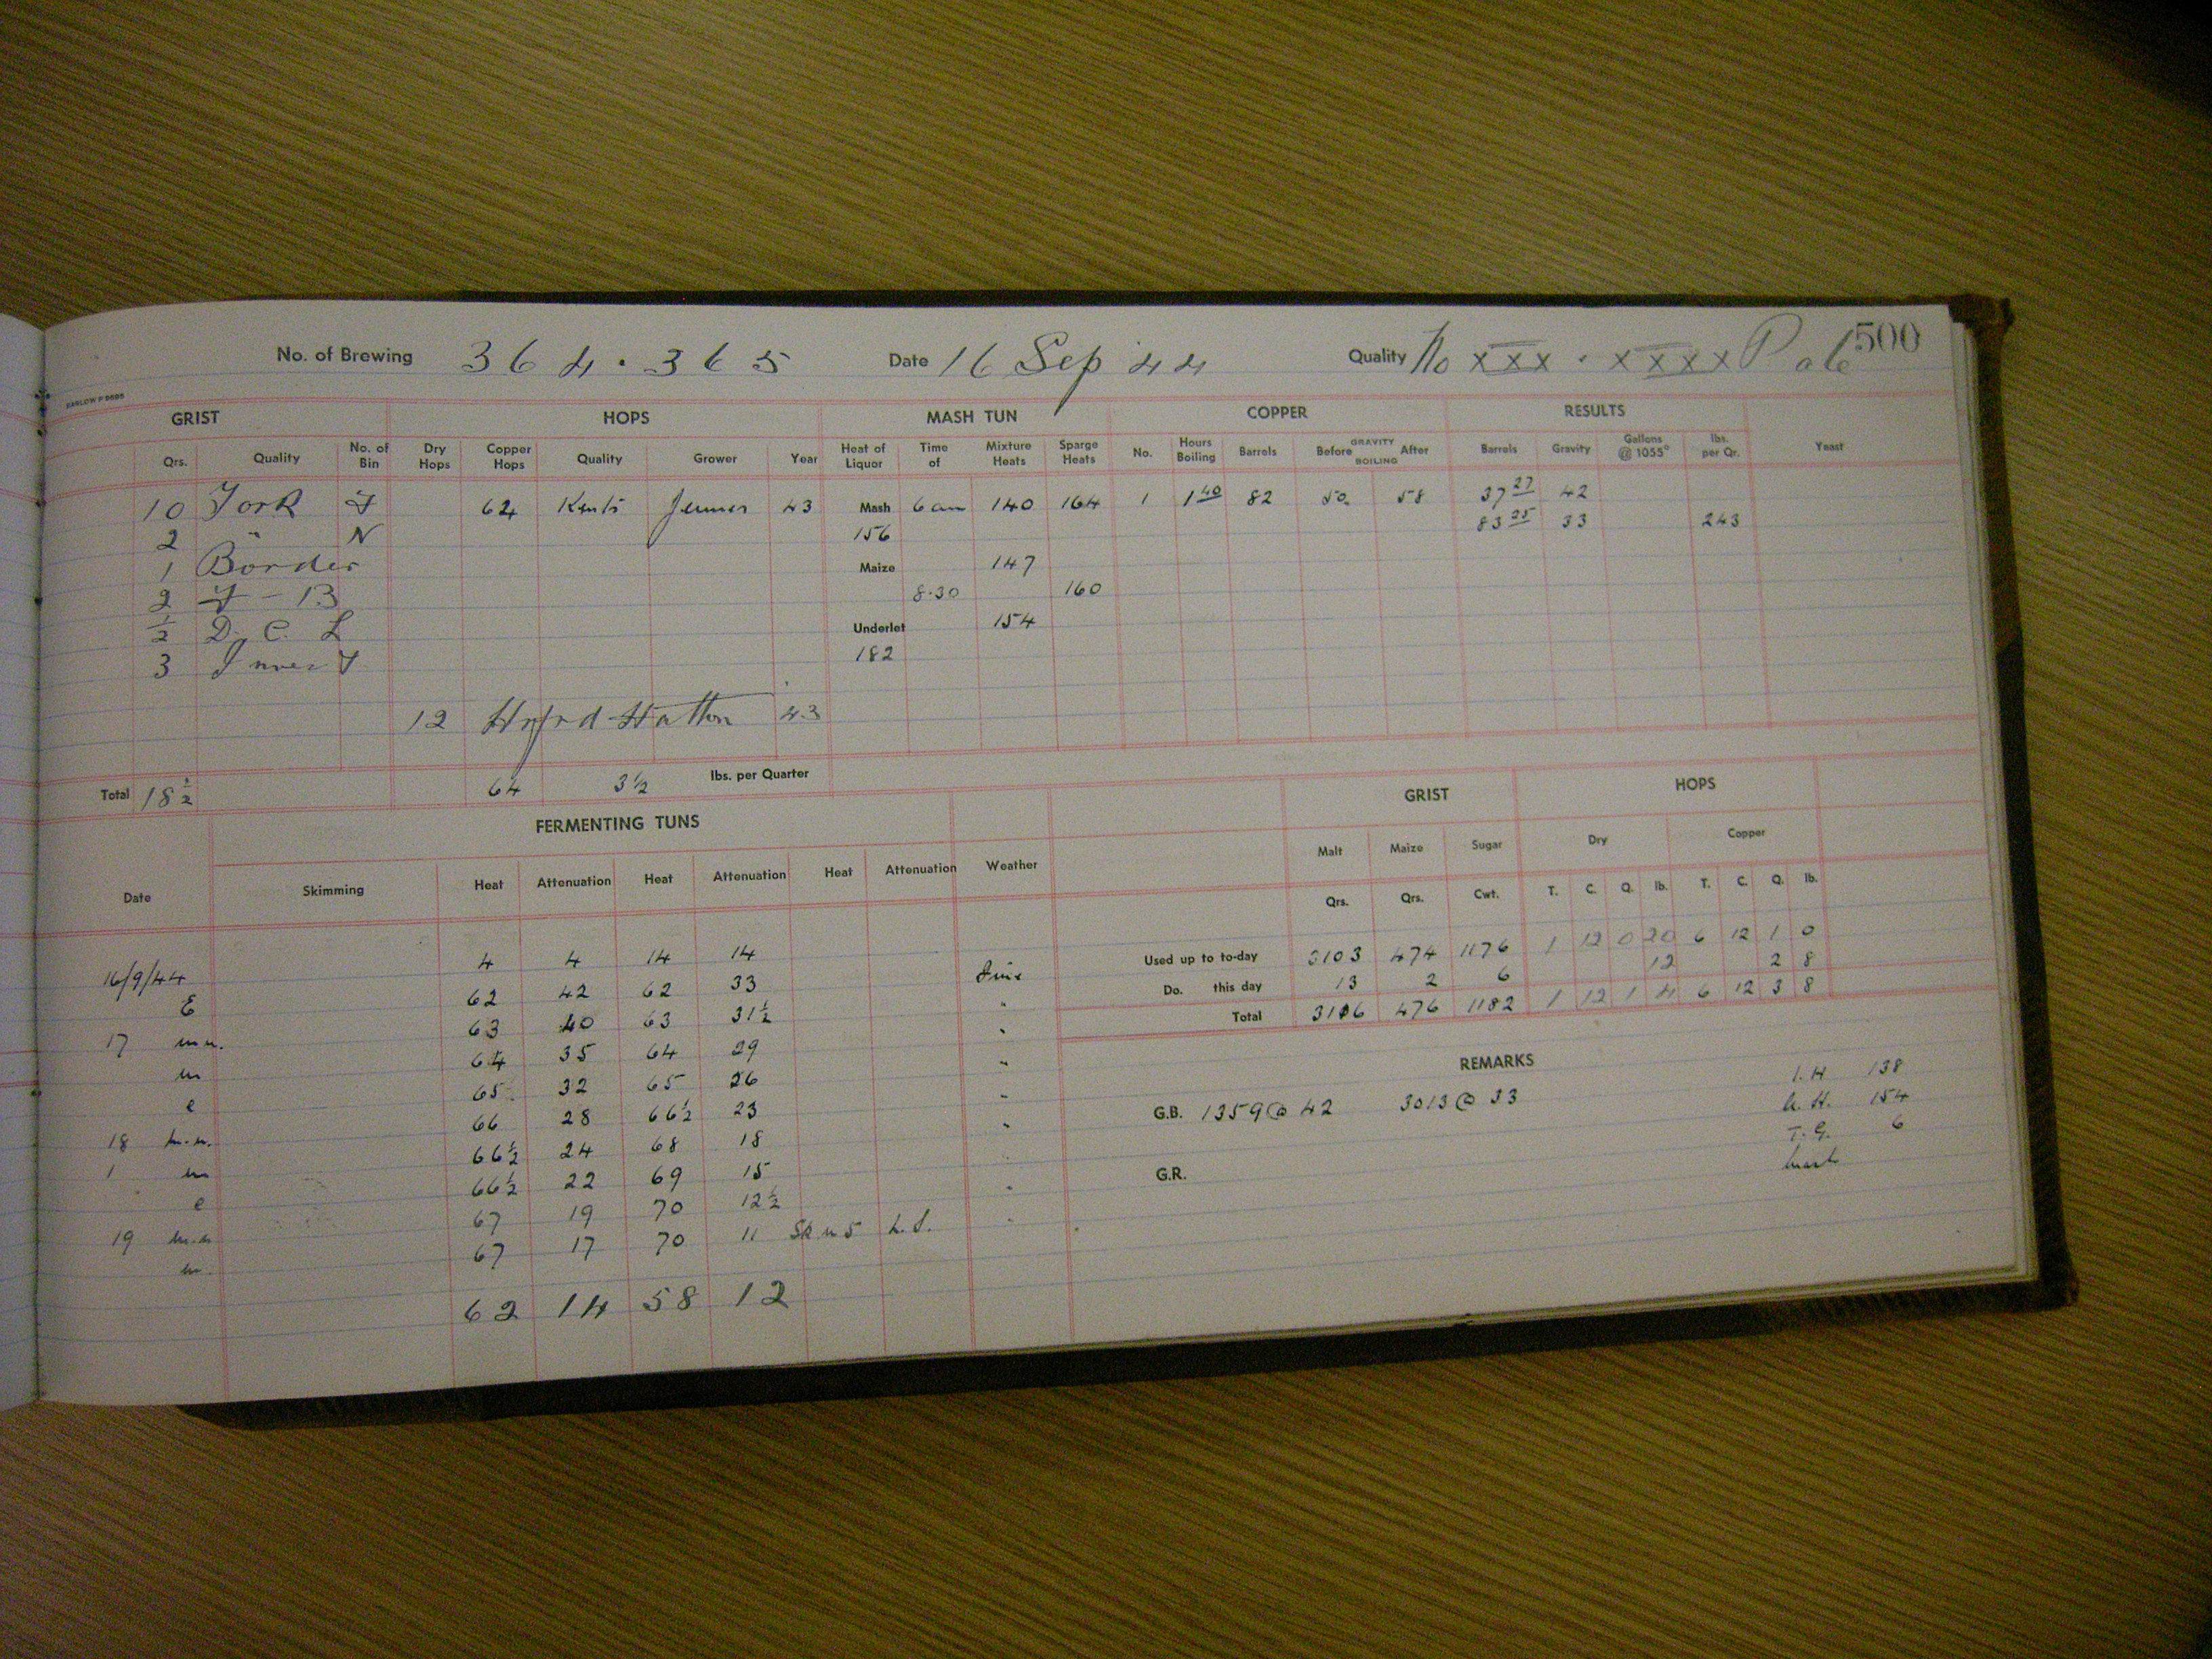 No. of Brewing 364 · 365 Date 16 Sep 44 Quality No XXX · XXXX Pale 500
GRIST HOPS MASH TUN COPPER RESULTS
Qrs. Quality No. of Bin Dry Hops Copper Hops Quality Grower Year Heat of Liquor Time of Mixture Heats Sparge Heats No. Hours Boiling Barrels Before GRAVITY BOILING After Barrels Gravity Gallons @ 1055° lbs. per Qr. Yeast
10 York 64 Kents Jenner 43 Mash 6 am 140 164 1 1 40 82 50 58 37 27 42
2 " N 156 83 25 33 243
1 Border Maize 147
2 - 13 8·30 160
½ D. C. L Underlet 154
3 Invert 182
12 Hatton 43
Total 18½ 64 3½ lbs. per Quarter
FERMENTING TUNS
Date Skimming Heat Attenuation Heat Attenuation Heat Attenuation Weather
16/9/44 4 4 14 14 Fine
E 62 42 62 33 "
17 m.n. 63 40 63 31½ "
m 64 35 64 29 "
e 65 32 65 26 "
18 m.n. 66 28 66½ 23 "
1 m 66½ 24 68 18
e 66½ 22 69 15 "
19 m.n 67 19 70 12½ "
m. 67 17 70 11
62 14 58 12
GRIST HOPS
Malt Maize Sugar Dry Copper
Qrs. Qrs. Cwt. T. C. Q. lb. T. C. Q. lb.
Used up to to-day 3103 474 1176 1 12 0 20 6 12 1 0
Do. this day 13 2 6 12 2 8
Total 3116 476 1182 1 12 1 4 6 12 3 8
REMARKS
G.B. 1359 @ 42 3013 @ 33
G.R.
I. H 138
154
T. G. 6